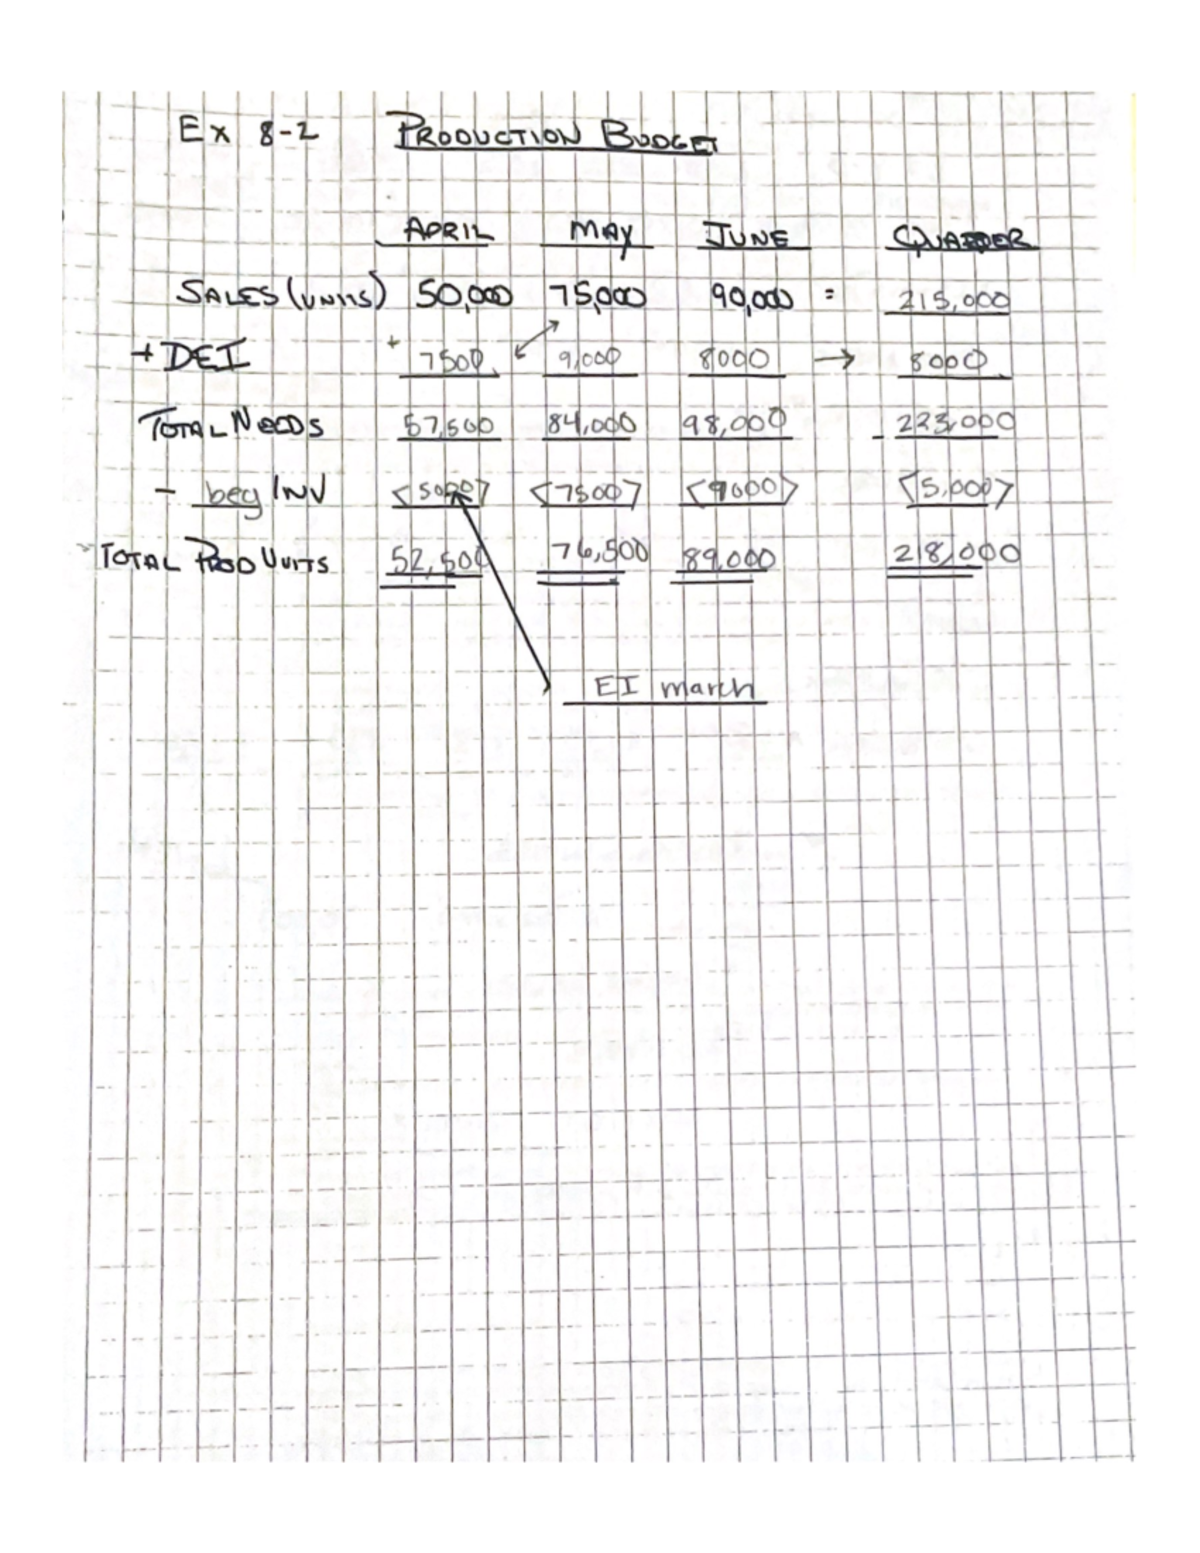 Ex 8-2 PRODUCTION BUDGET
APRIL MAY JUNE QUARDER
SALES (UNITS) 50,000 75,000 90,000 = 215,000
+ DEI + 7500 9,000 8000 → 8000
TOTAL NEEDS 57,500 84,000 98,000 223,000
- beg INV <5000> <7500> <9000> <5,000>
TOTAL PROD UNITS 52,500 76,500 89,000 218,000
EI march